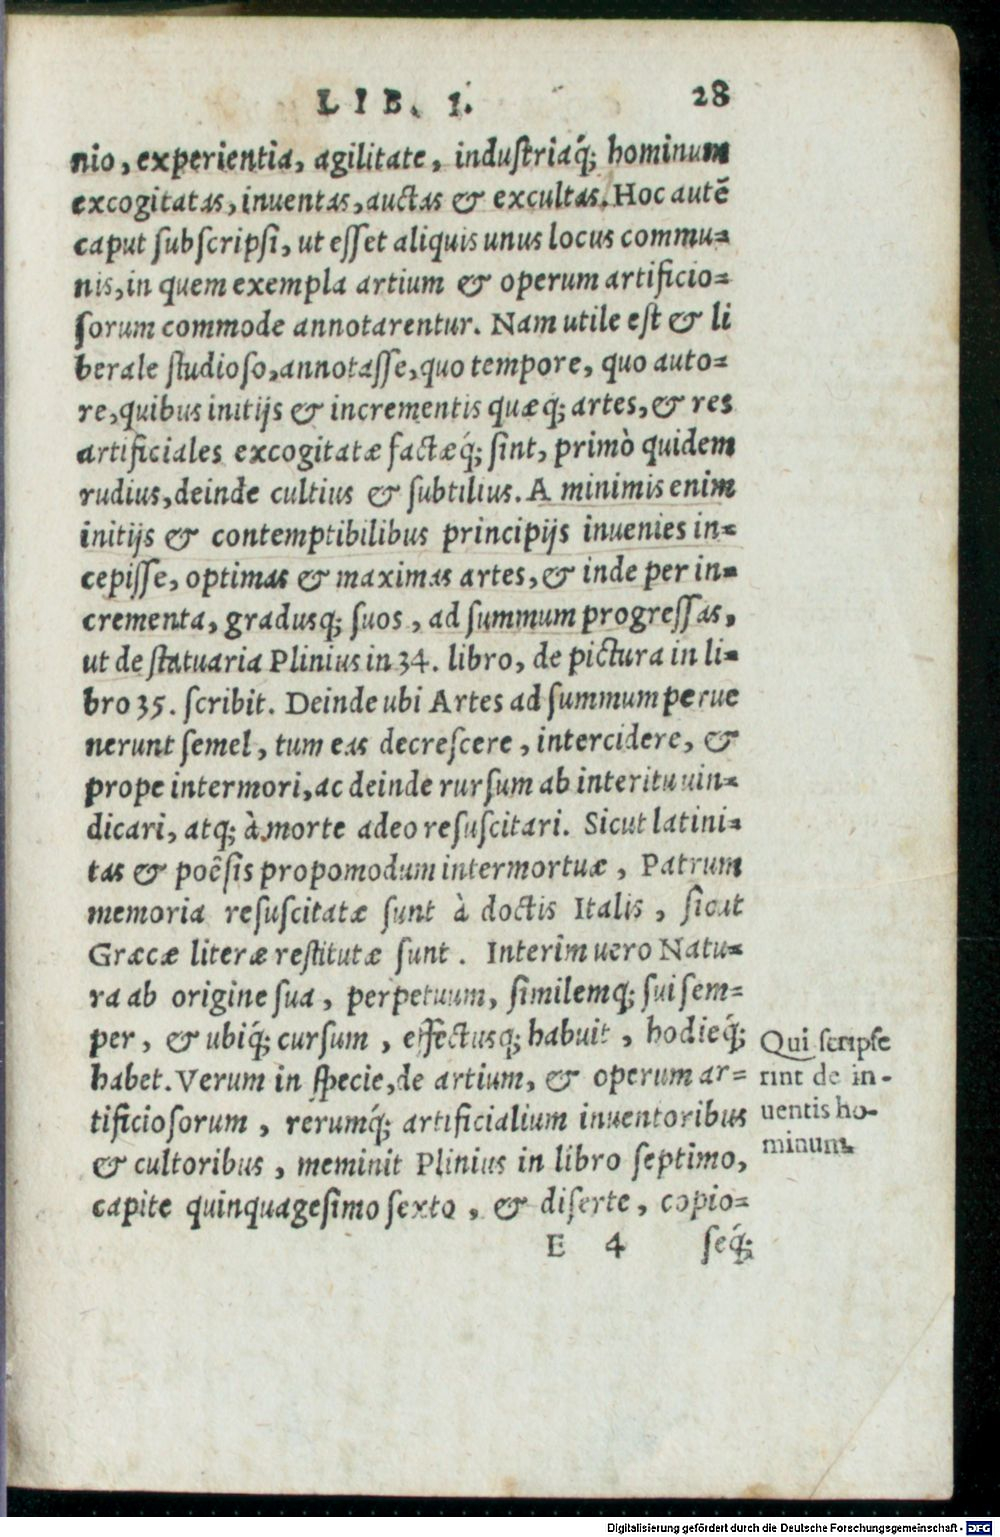 LIB. I. 28
nio, experientia, agilitate, industriaq́; hominum
excogitatas, inuentas, auctas & excultas. Hoc autē
caput subscripsi, ut esset aliquis unus locus commu-
nis, in quem exempla artium & operum artificio-
sorum commode annotarentur. Nam utile est & li
berale studioso, annotasse, quo tempore, quo auto-
re, quibus initijs & incrementis quæq; artes, & res
artificiales excogitatæ factæq́; sint, primò quidem
rudius, deinde cultius & subtilius. A minimis enim
initijs & contemptibilibus principijs inuenies in-
cepisse, optimas & maximas artes, & inde per in-
crementa, gradusq; suos, ad summum progressas,
ut de statuaria Plinius in 34. libro, de pictura in li-
bro 35. scribit. Deinde ubi Artes ad summum perue
nerunt semel, tum eas decrescere, intercidere, &
prope intermori, ac deinde rursum ab interitu uin-
dicari, atq; à morte adeo resuscitari. Sicut latini-
tas & poësis propomodum intermortuæ, Patrum
memoria resuscitatæ sunt à doctis Italis, sicut
Græcæ literæ restitutæ sunt. Interim uero Natu-
ra ab origine sua, perpetuum, similemq; sui sem-
per, & ubiq́; cursum, effectusq; habuit, hodieq́;
habet. Verum in specie, de artium, & operum ar-
tificiosorum, rerumq́; artificialium inuentoribus
& cultoribus, meminit Plinius in libro septimo,
capite quinquagesimo sexto, & diserte, copio-
E 4 seq́;
Qui scripse
rint de in-
uentis ho-
minum.
Digitalisierung gefördert durch die Deutsche Forschungsgemeinschaft - DFG